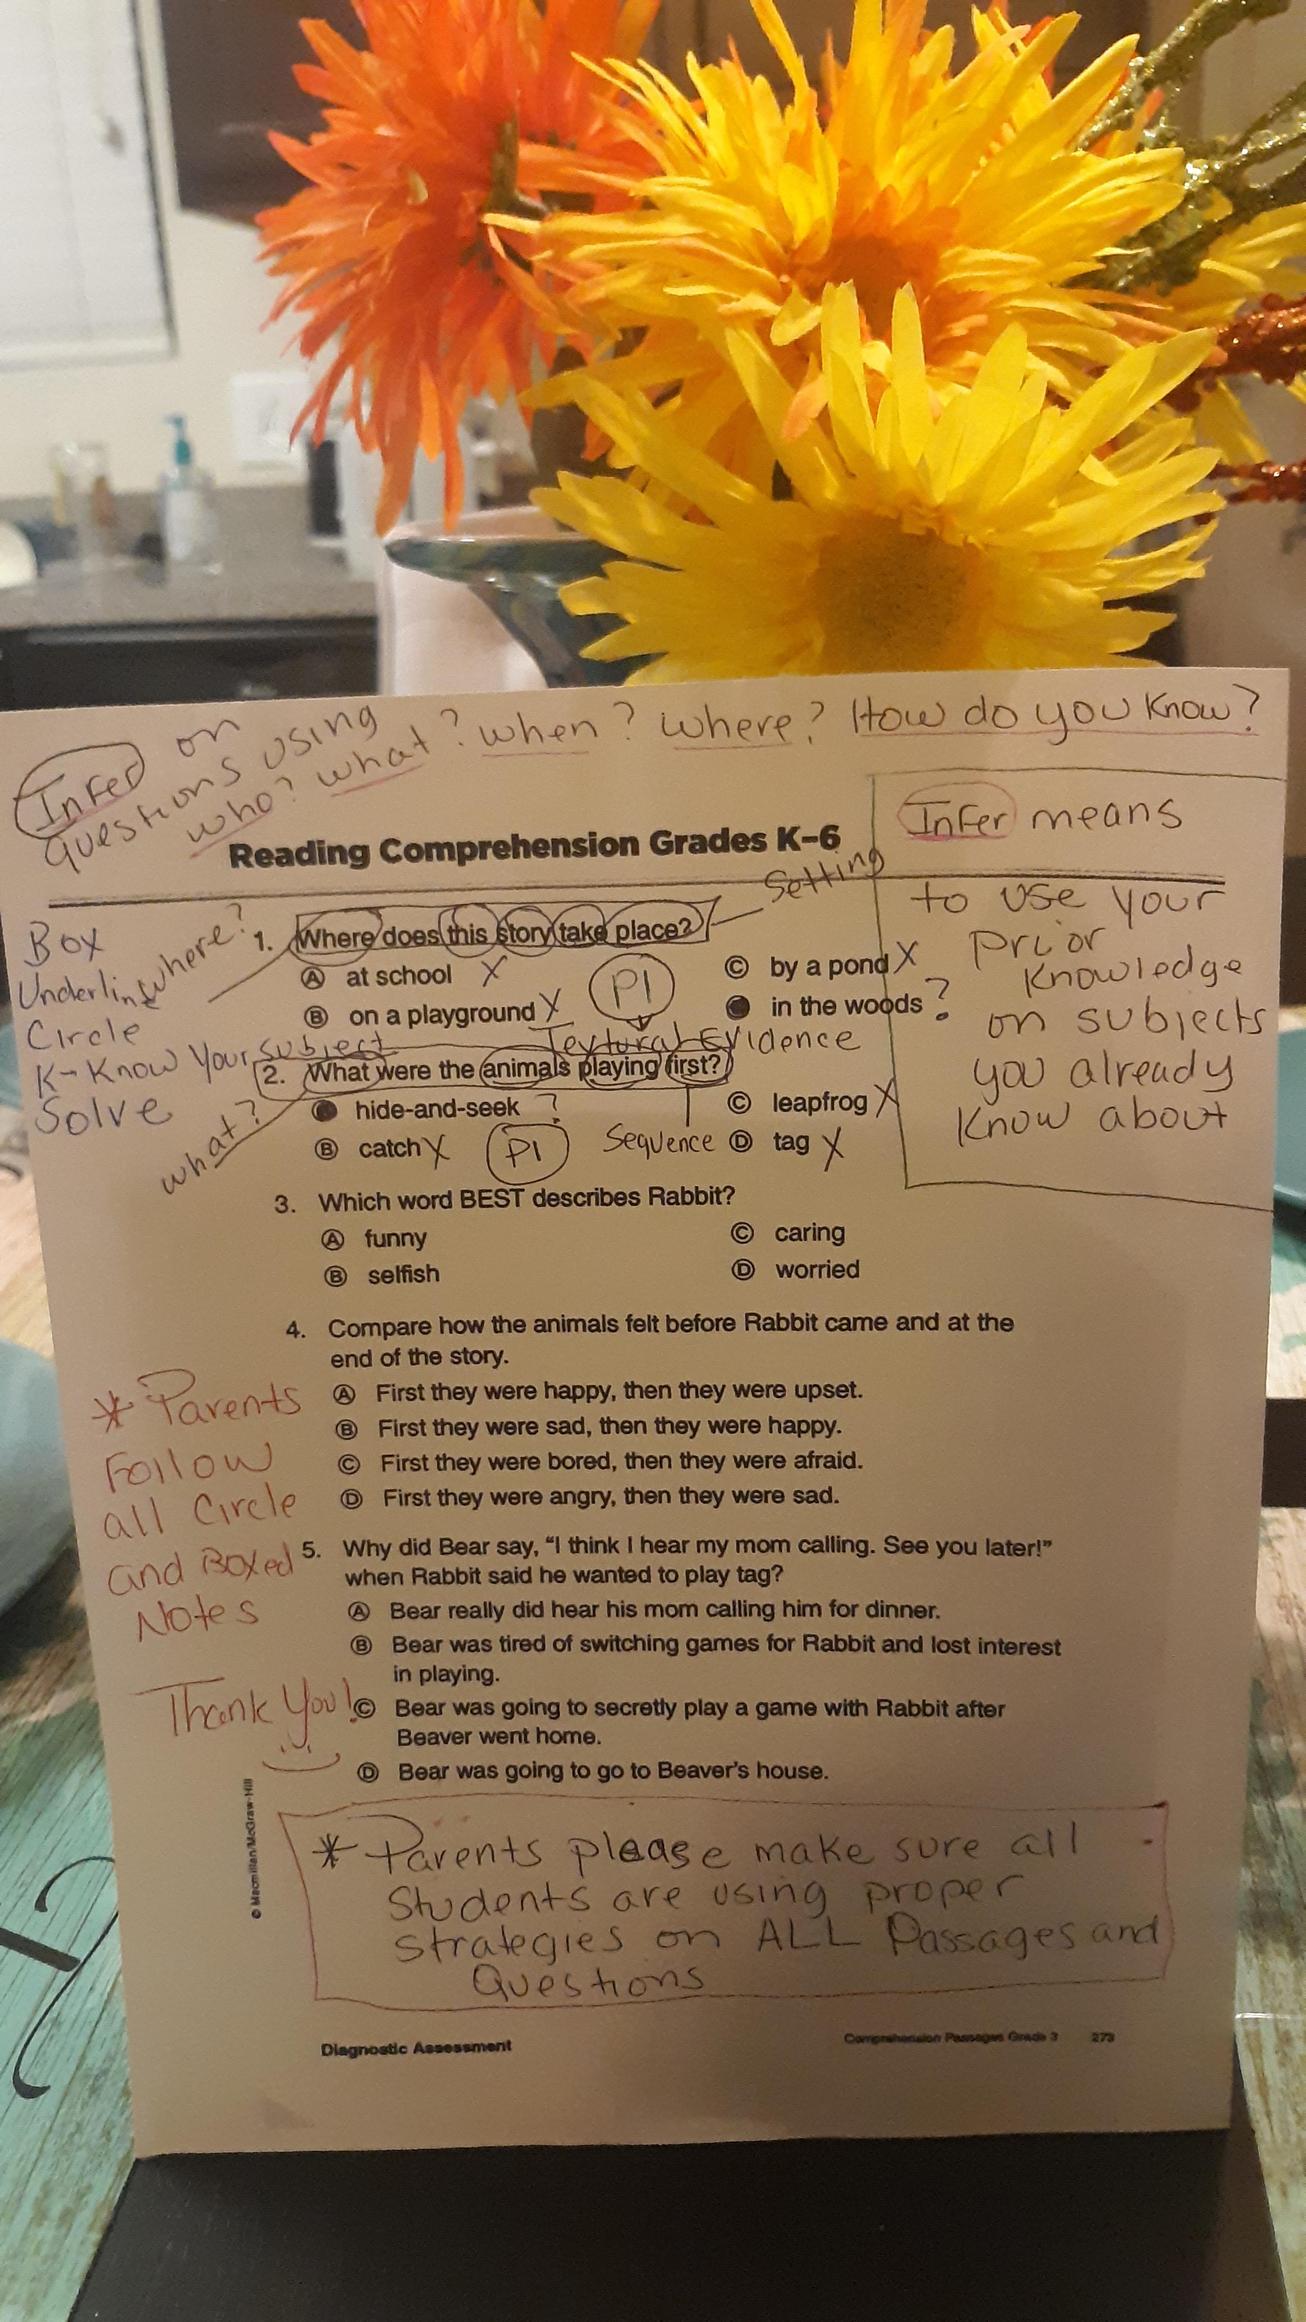 Infer on
Questions using
who? what? when? where? How do you know?
Infer means
to use your
prior
knowledge
on subjects
you already
know about
Reading Comprehension Grades K–6
Setting
Box
Underline
Circle
K- Know Your Subject
Solve
where?
1. Where does this story take place?
Ⓐ at school X
Ⓒ by a pond X
Ⓑ on a playground X
in the woods ?
P1
Textural Evidence
2. What were the animals playing first?
what?
hide-and-seek ?
Ⓒ leapfrog X
Ⓑ catch X
P1
Sequence
Ⓓ tag X
3. Which word BEST describes Rabbit?
Ⓐ funny
Ⓒ caring
Ⓑ selfish
Ⓓ worried
4. Compare how the animals felt before Rabbit came and at the
end of the story.
Ⓐ First they were happy, then they were upset.
Ⓑ First they were sad, then they were happy.
Ⓒ First they were bored, then they were afraid.
Ⓓ First they were angry, then they were sad.
* Parents
Follow
all Circle
and Boxed
Notes
Thank You!
5. Why did Bear say, “I think I hear my mom calling. See you later!”
when Rabbit said he wanted to play tag?
Ⓐ Bear really did hear his mom calling him for dinner.
Ⓑ Bear was tired of switching games for Rabbit and lost interest
in playing.
Ⓒ Bear was going to secretly play a game with Rabbit after
Beaver went home.
Ⓓ Bear was going to go to Beaver’s house.
© Macmillan/McGraw-Hill
* Parents please make sure all
Students are using proper
strategies on ALL Passages and
Questions
Diagnostic Assessment
Comprehension Passages Grade 3 273